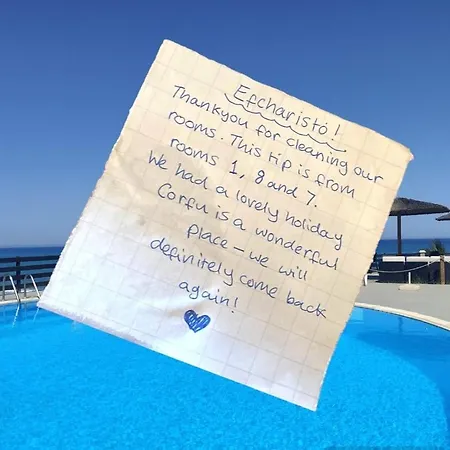 Efcharistó!
Thankyou for cleaning our
rooms. This tip is from
rooms 1, 8 and 7.
We had a lovely holiday
Corfu is a wonderful
place – we will
definitely come back
again!